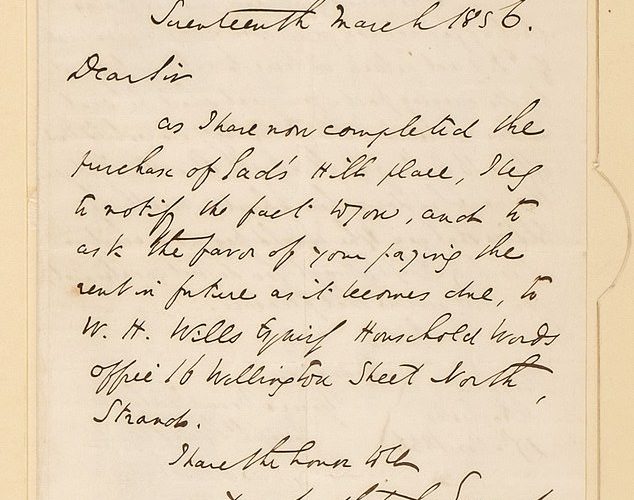 Seventeenth March 1856.
Dear Sir
as I have now completed the
purchase of Gad's Hill place, I beg
to notify the fact to you, and to
ask the favor of your paying the
rent in future as it becomes due, to
W. H. Wills Esquire Household Words
office 16 Wellington Street North,
Strand.
I have the honor to be